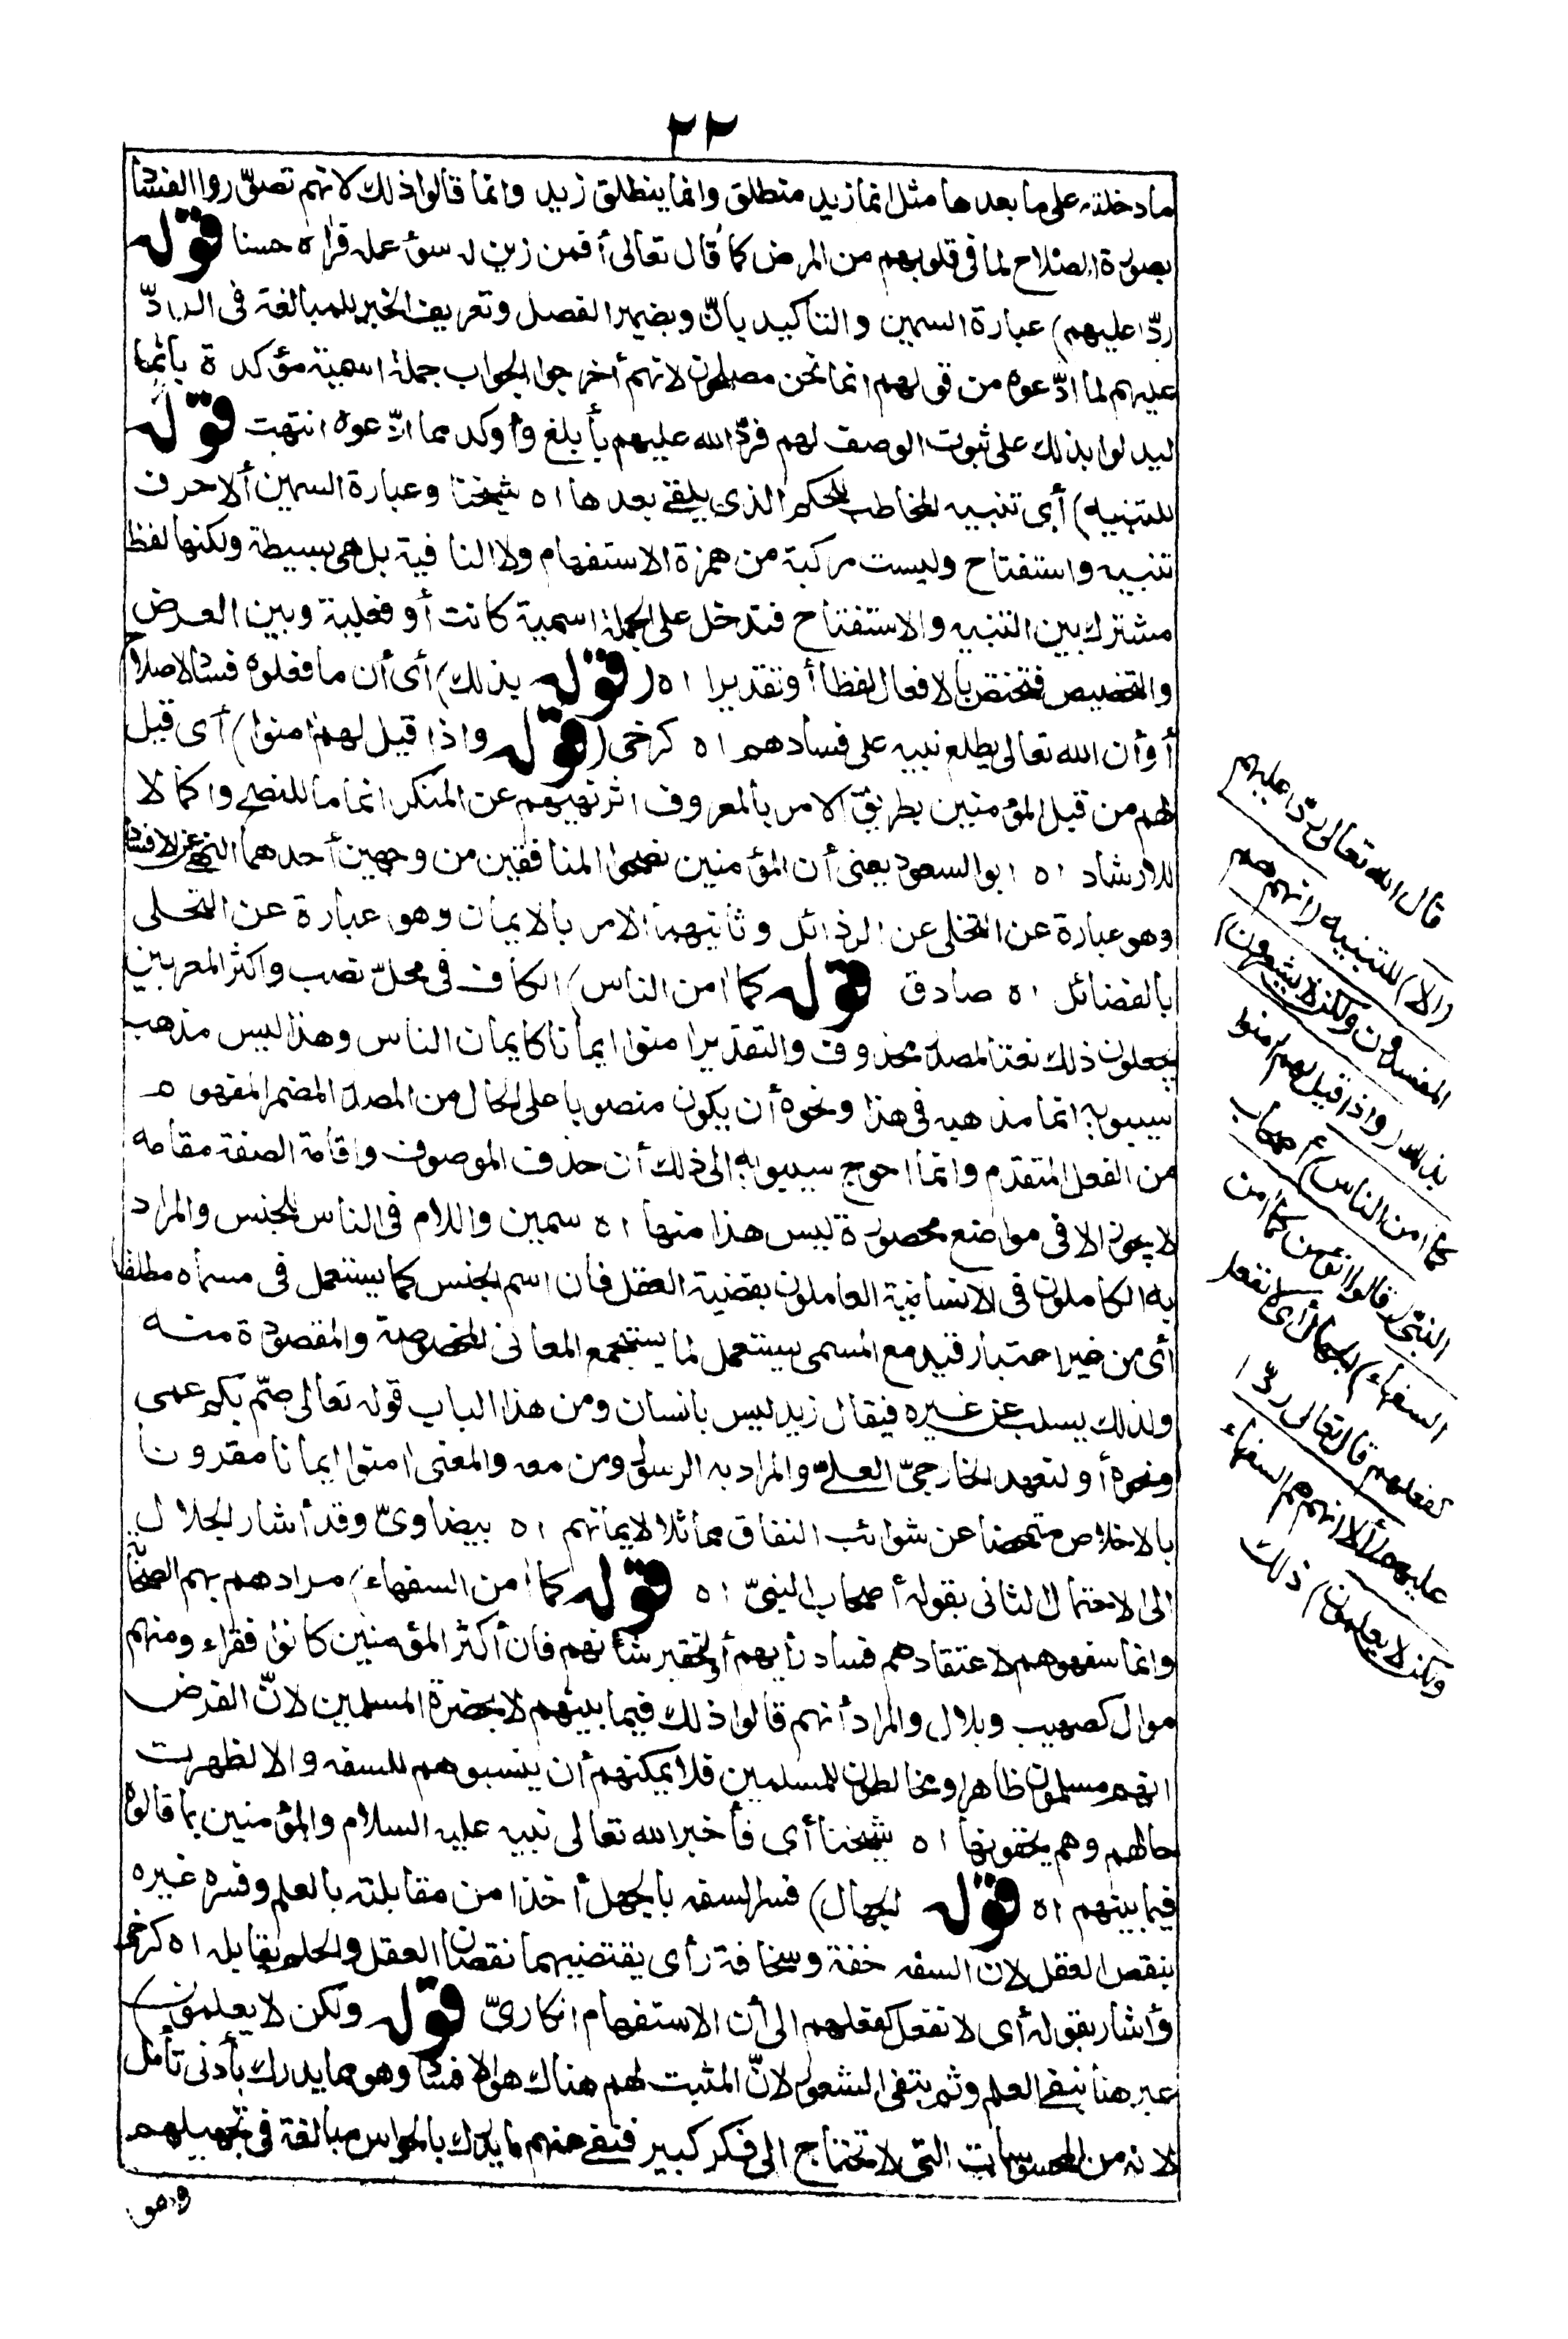 ٢٢
ما دخلته على ما بعدها مثل انما زيد منطلق وانما ينطلق زيد وانما قالوا ذلك لانهم تصوّروا الفساد
بصورة الصلاح لما فى قلوبهم من المرض كما قال تعالى أفمن زين له سوء عمله فرآه حسنا قوله
ردّا عليهم) عبارة السمين والتاكيد بانّ وبضمير الفصل وتعريف الخبر للمبالغة فى الردّ
عليهم لما ادّعوه من قولهم انما نحن مصلحون لانهم أخرجوا الجواب جملة اسمية مؤكدة بانما
ليدلوا بذلك على ثبوت الوصف لهم فردّ الله عليهم بأبلغ وأوكد مما ادّعوه انتهت قوله
للتنبيه) أى تنبيه المخاطب للحكم الذى يلقى بعدها اه شيخنا وعبارة السمين ألا حرف
تنبيه واستفتاح وليست مركبة من همزة الاستفهام ولا النافية بل هى بسيطة ولكنها لفظ
مشترك بين التنبيه والاستفتاح فتدخل على الجملة اسمية كانت أو فعلية وبين العرض
والتخصيص فتختص بالافعال لفظا أو تقديرا اه (قوله بذلك) أى أن ما فعلوه فساد لا صلاح
أو أن الله تعالى يطلع نبيه على فسادهم اه كرخى (قوله واذا قيل لهم امنوا) أى قيل
لهم من قبل المؤمنين بطريق الامر بالمعروف اثر نهيهم عن المنكر اتماما للنصح واكمالا
للارشاد اه ابو السعود يعنى أن المؤمنين نصحوا المنافقين من وجهين أحدهما النهى عن الافساد
وهو عبارة عن التخلى عن الرذائل وثانيهما الامر بالايمان وهو عبارة عن التحلى
بالفضائل اه صادق قوله كما امن الناس) الكاف فى محلّ نصب واكثر المعربين
يجعلون ذلك نعتا لمصدر محذوف والتقدير امنوا ايمانا كايمان الناس وهذا ليس مذهب
سيبويه انما مذهبه فى هذا ونحوه أن يكون منصوبا على الحال من المصدر المضمر المفهوم
من الفعل المتقدم وانما احوج سيبويه الى ذلك أن حذف الموصوف واقامة الصفة مقامه
لا يجوز الا فى مواضع محصورة ليس هذا منها اه سمين واللام فى الناس للجنس والمراد
به الكاملون فى الانسانية العاملون بقضية العقل فان اسم الجنس كما يستعمل فى مسماه مطلقا
أى من غير اعتبار قيد مع المسمى يستعمل لما يستجمع المعانى المخصوصة والمقصودة منه
ولذلك يسلب عن غيره فيقال زيد ليس بانسان ومن هذا الباب قوله تعالى صمّ بكم عمى
ونحوه أو لتعهد الخارجىّ العلمىّ والمراد به الرسول ومن معه والمعنى امنوا ايمانا مقرونا
بالاخلاص متمحضا عن شوائب النفاق مماثلا لايمانهم اه بيضاوىّ وقد أشار الجلال
الى الاحتمال الثانى بقوله أصحاب النبىّ اه قوله كما امن السفهاء) مرادهم بهم الصحابة
وانما سفهوهم لاعتقادهم فساد رأيهم أو لتحقير شأنهم فان أكثر المؤمنين كانوا فقراء ومنهم
موال كصهيب وبلال والمراد أنهم قالوا ذلك فيما بينهم لا بحضرة المسلمين لانّ الفرض
انهم مسلمون ظاهرا ومخالطون للمسلمين فلا يمكنهم أن ينسبوهم للسفه والا لظهرت
حالهم وهم يخفونها اه شيخنا أى فأخبر الله تعالى نبيه عليه السلام والمؤمنين بما قالوه
فيما بينهم اه قوله الجهال) فسر السفه بالجهل أخذا من مقابلته بالعلم وفسره غيره
بنقص العقل لان السفه خفة وسخافة رأى يقتضيهما نقصان العقل والحلم يقابله اه كرخى
وأشار بقوله أى لا نفعل كفعلهم الى أن الاستفهام انكارىّ قوله ولكن لا يعلمون)
عبر هنا بنفى العلم وثم بنفى الشعور لانّ المثبت لهم هناك هو الافساد وهو مما يدرك بأدنى تأمل
لانه من المحسوسات التى لا تحتاج الى فكر كبير فنفى عنهم ما يدرك بالحواس مبالغة فى تجهيلهم
وهو
قال الله تعالى ردّا عليهم
(ألا) للتنبيه (انهم هم
المفسدون ولكن لا يشعرون)
بذلك (واذا قيل لهم امنوا
كما امن الناس) أصحاب
النبىّ (قالوا أنؤمن كما امن
السفهاء) الجهال أى لا نفعل
كفعلهم قال تعالى ردّا
عليهم (ألا انهم هم السفهاء
ولكن لا يعلمون) ذلك